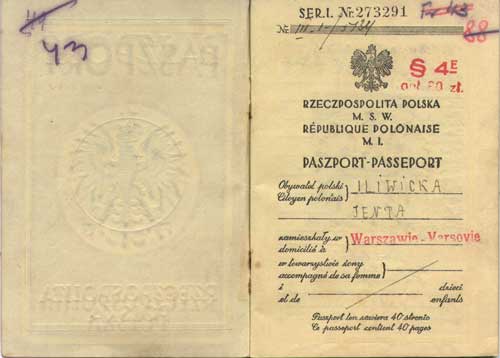 43
SER.I. № 273291
88
§ 4E
opł. 80 zł.
RZECZPOSPOLITA POLSKA
M. S. W.
RÉPUBLIQUE POLONAISE
M. I.
PASZPORT-PASSEPORT
Obywatel polski
Citoyen polonais
ILIWICKA
JENTA
zamieszkały w
domicilié à
Warszawie-Varsovie
w towarzystwie żony
accompagné de sa femme
i dzieci
et de enfants
Paszport ten zawiera 40 stronic
Ce passeport contient 40 pages